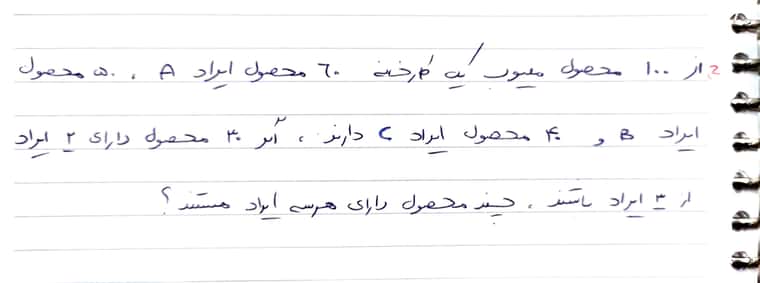 2 از ۱۰۰ محصول معیوب یک کارخانه ۶۰ محصول ایراد A ، ۵۰ محصول
ایراد B و ۴۰ محصول ایراد C دارند ، اگر ۳۰ محصول دارای ۲ ایراد
از ۳ ایراد باشند ، چند محصول دارای هر سه ایراد هستند ؟